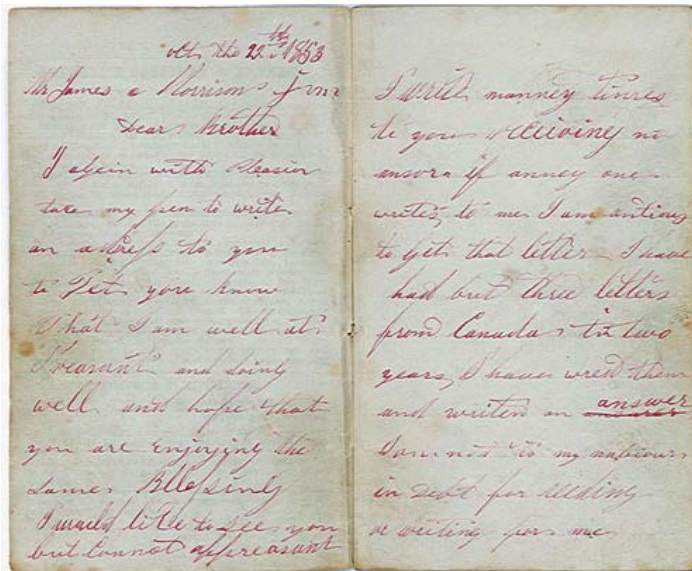 octr the 22th 1853
Mr James a Morrison Junr
Dear Brother
I again with Pleasior
take my pen to write
an adress to you
to Let you know
that I am well at
Preasant and doing
well and hope that
you are enjoying the
Sames Bllessing
I would like to see you
but Connot at preasant
I write manney times
to you receiving no
ansor if anney one
writes to me I am antious
to get that letter I have
had but three letters
from Canada in two
years I have wred them
and writen an answer
I am not to my
in Debt for reeding
or writing for me